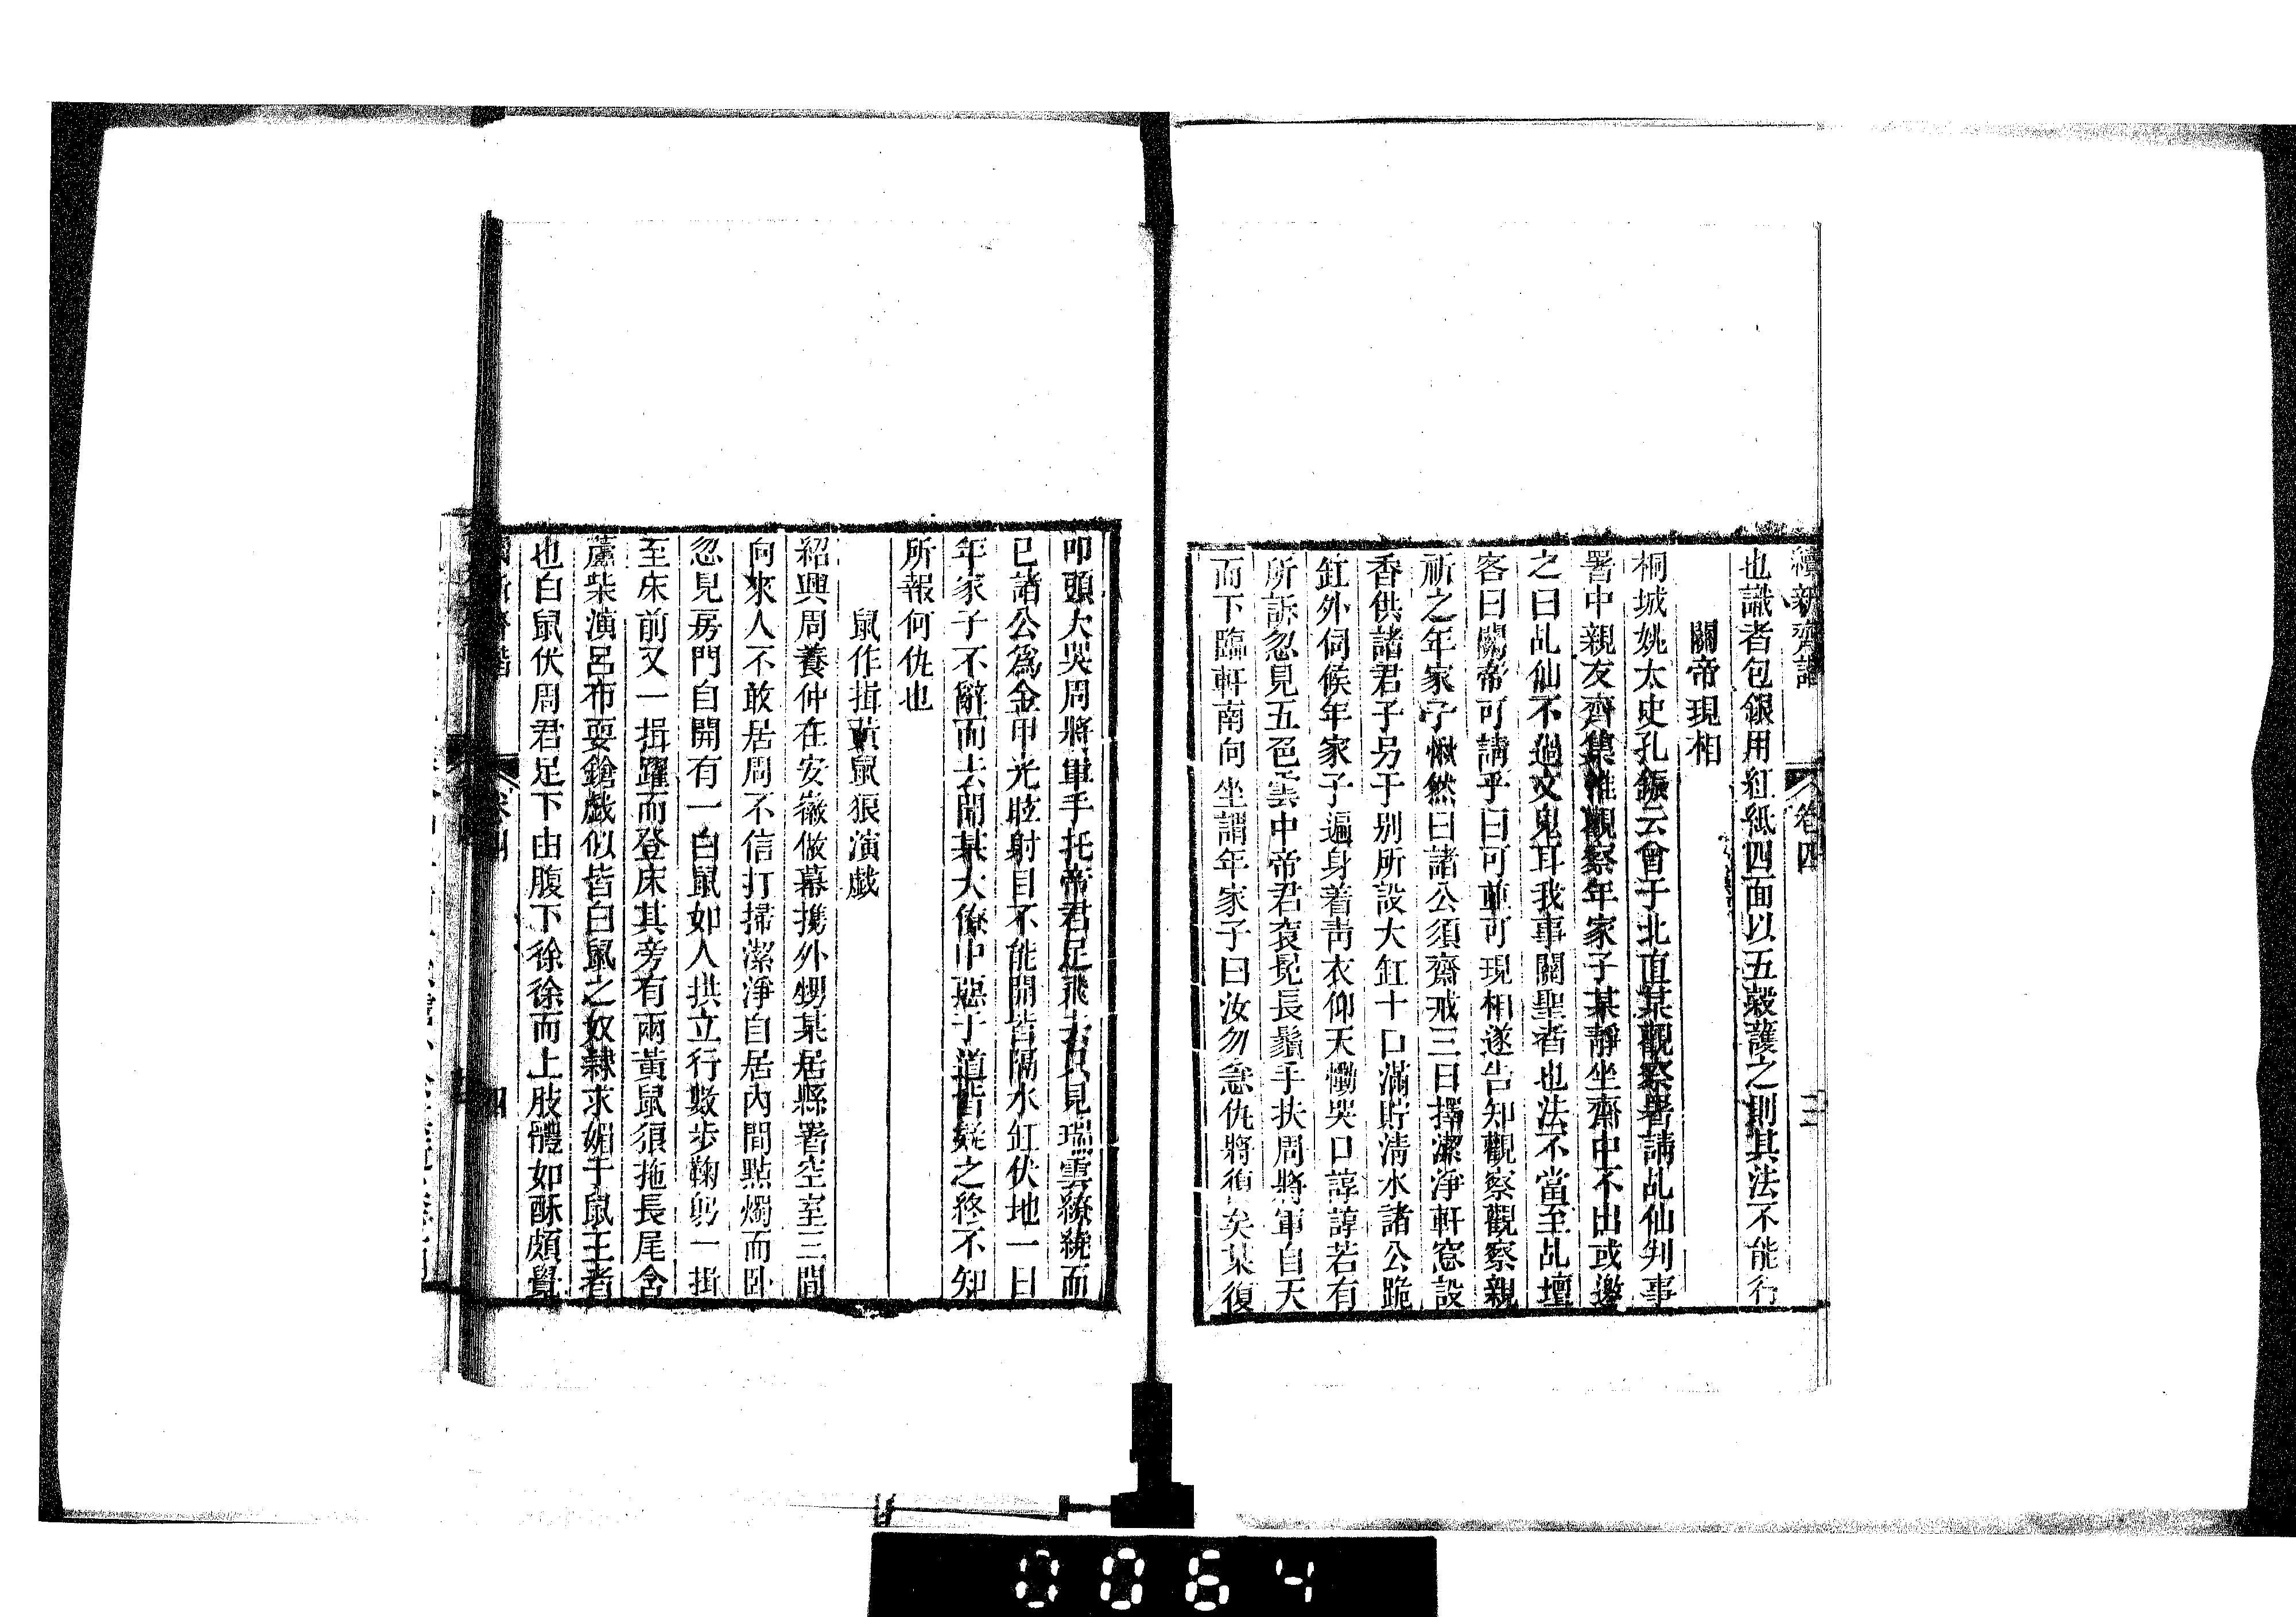 續新齊諧
卷四
三
也識者包銀用紅紙四面以五穀護之則其法不能行
關帝現相
桐城姚太史孔鋠云曾于北直某觀察署請乩仙判事
署中親友齊集惟觀察年家子某靜坐齋中不出或邀
之曰乩仙不過文鬼耳我事關聖者也法不當至乩壇
客曰關帝可請乎曰可並可現相遂告知觀察觀察親
祈之年家子愀然曰諸公須齋戒三日擇潔淨軒窓設
香供諸君子另于别所設大缸十口滿貯清水諸公跪
缸外伺候年家子遍身着青衣仰天慟哭口諄諄若有
所訴忽見五色雲中帝君衮冕長鬚手扶周將軍自天
而下臨軒南向坐謂年家子曰汝勿急仇將復矣某復
叩頭大哭周將軍手托帝君足飛去只見瑞雲繚繞而
已諸公爲金甲光眩射目不能開皆隔水缸伏地一日
年家子不辭而去聞某大僚中惡于道皆疑之終不知
所報何仇也
鼠作揖黃鼠狼演戲
紹興周養仲在安徽做幕携外甥某居縣署空室三間
向來人不敢居周不信打掃潔淨自居內間點燭而卧
忽見房門自開有一白鼠如人拱立行數步鞠躬一揖
至床前又一揖躍而登床其旁有兩黃鼠狼拖長尾含
蘆柴演呂布耍鎗戲似皆白鼠之奴隸求媚于鼠王者
也白鼠伏周君足下由腹下徐徐而上肢體如酥頗覺
卷四
四
0064